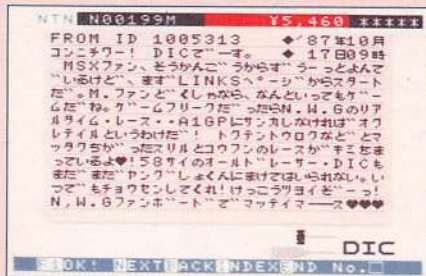 NTN N00199M ¥5,460 *****
FROM ID 1005313 ◆'87年10月
コンニチワー! DICで゛ーす。 ◆ 17日09時
MSXファン、そうかんご゛うからず゛うーっとよんで
゛いるけど゛、まず゛LINKSペ゜ーシ゛からスタート
だ゛。M.ファンと゛くしゃなら、なんといってもケ゛ー
ムだ゛ね。ケ゛ームフリークた゛ったらN.W.Gのリア
ルタイム・レース・・A1GPにサンカしなければ゛オク
レテイルというわけた゛! トクテントウロクなど゛とマ
ッタクちか゛ったスリルとコウフンのレースか゛キミをま
っているよ♥!58サイのオールト゛レーサー・DICも
また゛また゛ヤンク゛しょくんにまけてはいられない。い
つて゛もチョウセンしてくれ!けっこうツヨイそ゛ーっ!
N,W.Gファンホ゛ート゛て゛マッテイマーース♥♥♥
DIC
F1OK! NEXT BACK INDEX END No.